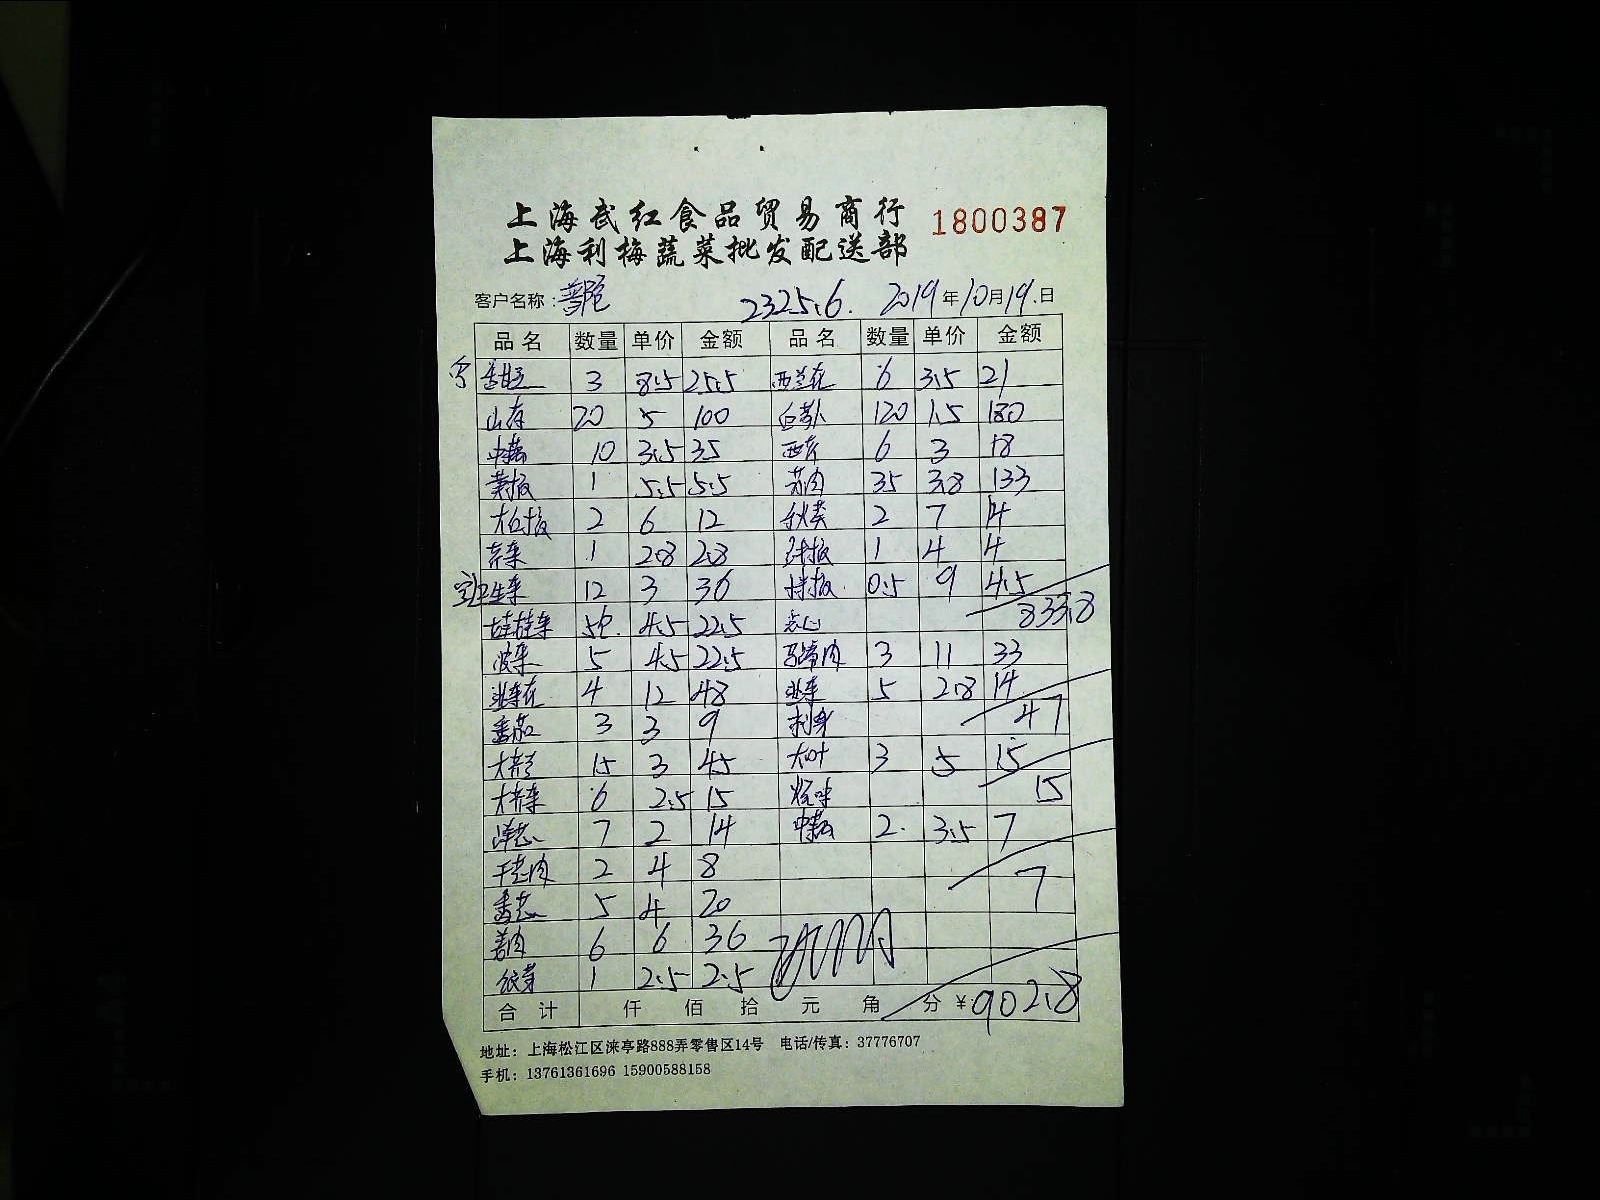 上海武红食品贸易商行
1800387
上海利梅蔬菜批发配送部
客户名称:
2325.6. 2019年10月19.日
品名 数量 单价 金额 品名 数量 单价 金额
3 8.5 25.5 西兰花 6 3.5 21
山药 20 5 100 白萝卜 120 1.5 180
中藕 10 3.5 35 西芹 6 3 18
1 5.5 5.5 35 3.8 133
2 6 12 秋葵 2 7 14
1 2.8 2.8 1 4 4
生菜 12 3 36 0.5 9 4.5
833.8
娃娃菜 5 4.5 22.5 点心
菠菜 5 4.5 22.5 马蹄肉 3 11 33
韭菜花 4 12 48 韭菜 5 2.8 14
47
番茄 3 3 9 刺身
15 3 45 大叶 3 5 15
15
6 2.5 15 烧味
洋葱 7 2 14 中藕 2. 3.5 7
2 4 8
7
香葱 5 4 20
姜肉 6 6 36
银芽 1 2.5 2.5
合计 仟 佰 拾 元 角 分 ¥902.8
地址：上海松江区涞亭路888弄零售区14号 电话/传真：37776707
手机：13761361696 15900588158